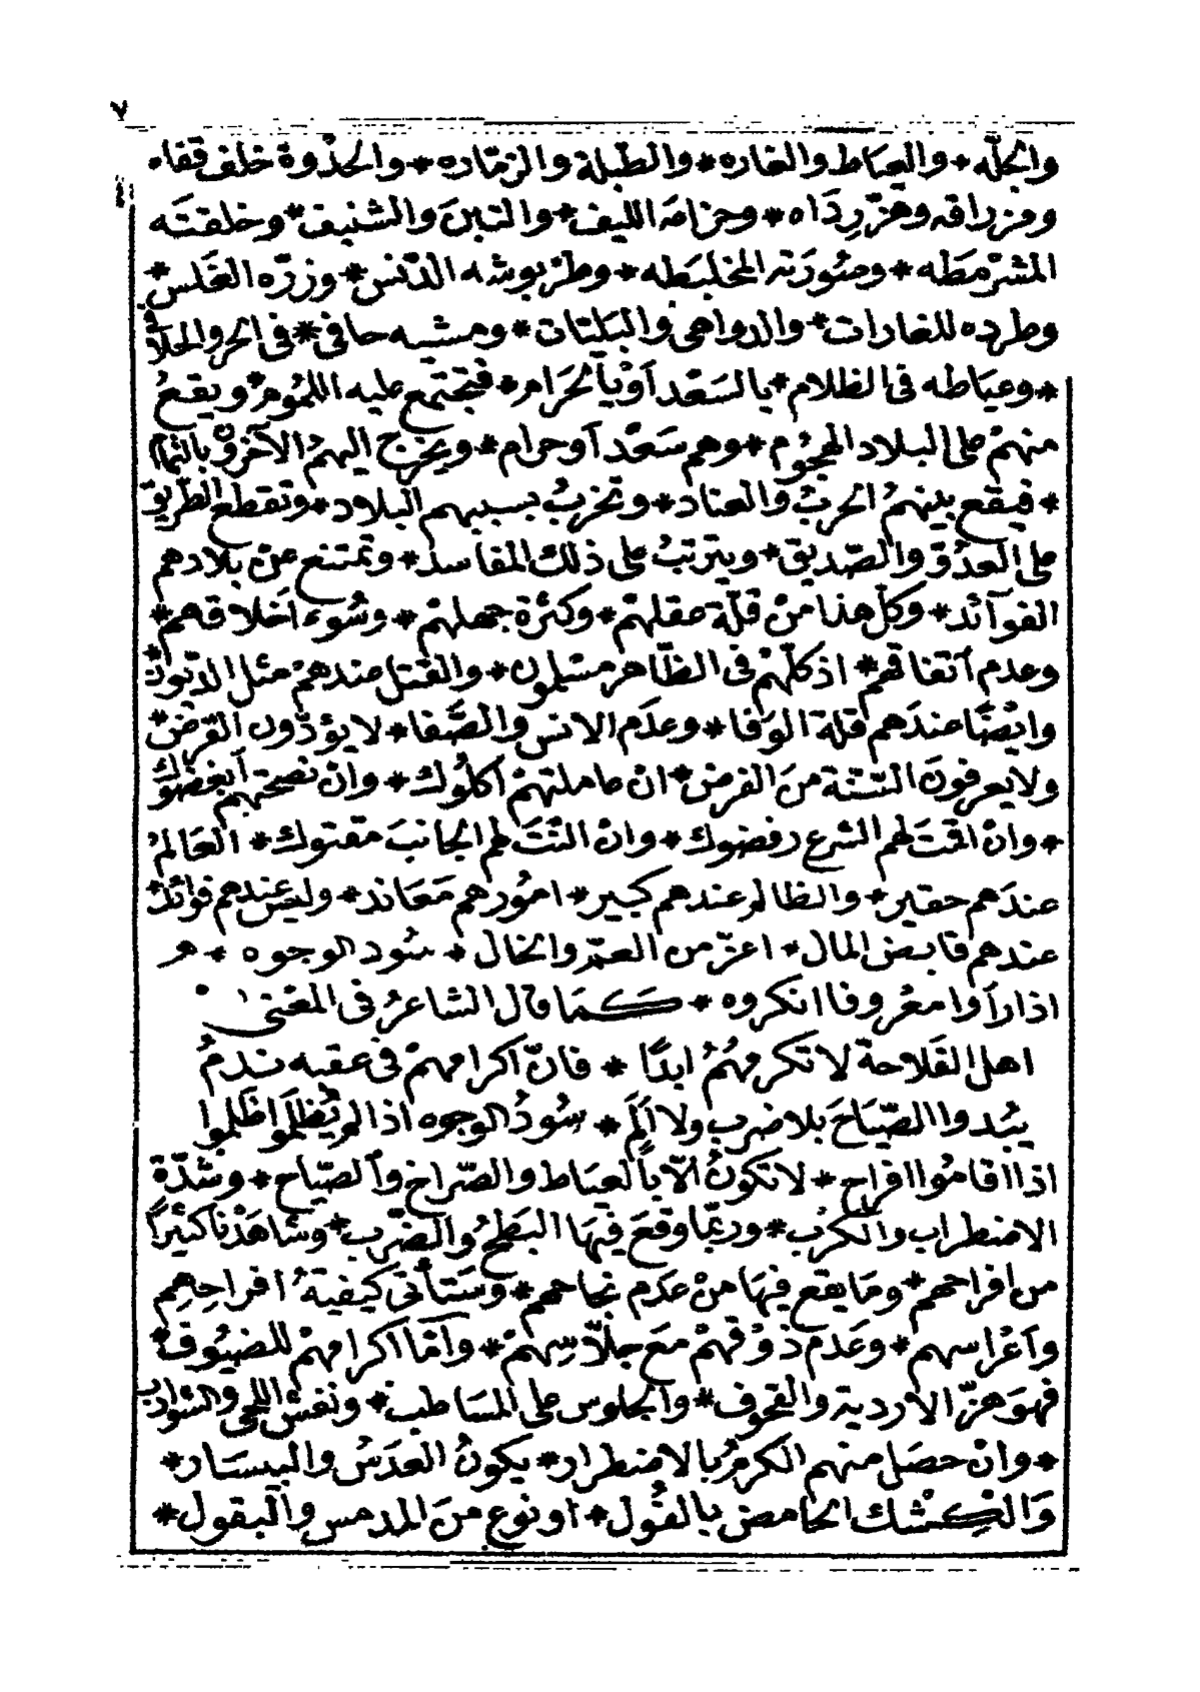 ٧
والجلّه * والعياط والغاره * والطبلة والزمّاره * والحذوة خلف قفاه
ومزراقه وهزّ رِدَاه * وحزامه الليف * والتبن والشنيف * وخلقتَه
المشرْمَطَه * وصُورَته المخلبَطه * وطرْبوشه الدّنس * وزرّه الغَلس *
وطرده للغارات * والدواهي والبَليّات * ومشيه حافي * في الحرّ والخلا
* وعيَاطه في الظلام * يالسَعْد أوْ يآلحَرَام * فتجتمع عليه اللمُوم * ويقعُ
منهمْ على البلاد الهجُوم * وهم سَعْد أو حرام * ويخرج اليهمُ الآخرون بالتمام
* فيقع بينهمُ الحربُ والعناد * وتخربُ بسببهم البلاد * وتقطع الطريق
على العدُوّ والصّديق * ويترتبُ على ذلك المفاسد * وتمتنع عنْ بلادهم
الفوآئد * وكلّ هذا منْ قلّة عقلهمْ * وكثرة جهلهمْ * وسُوء أخلاقهم *
وعدم آتفاقهم * اذ كلّهمْ في الظّاهر مسْلمون * والقتل عندهمْ مثل الديون
وايْضًا عندَهم قلة الوَفا * وعدَم الانس والصَّفا * لا يؤدّون القرض *
ولا يعرفونَ السّنّة منَ الفرض * انْ عاملتهمْ أكلُوك * وانْ نصحتهم أبغضوك
* وانْ اقمتَ لهم الشرع رفضوك * وانْ النْتَ لهم الجانبَ مقتوك * العَالمُ
عندَهم حقير * والظالم عندهم كبير * امُورهم مَعَاند * وليس عندهم فوائد *
عندهم قابض المال * اعزّ من العمّ والخال * سُود الوجوه * هم
اذا رآوا معْروفا انكروه * كَمَا قال الشاعرُ في المعْنى
اهل الفَلاحة لا تكرمهُمُ ابدًا * فانّ آكرامهمْ في عقبه ندمُ
يبْدوا الصّيَاحَ بلا ضرب ولا ألَم * سُودُ الوجوه اذا لم يُظلَمُوا ظلموا
اذا اقامُوا افراح * لا تكونُ الّا بالعيَاط والصّراخ والصّياح * وشدّة
الاضطراب والكرْب * وربّما وقعَ فيهَا البَطْحُ والضّرب * وشاهَدْنا كثيرًا
من افراحهم * ومَا يقع فيهَا منْ عدَم نجاحهم * وسَتأتي كيفيّةُ افراحِهِم
وآعْراسهم * وعَدم ذوْقهمْ معَ جلّاسِهمْ * وآمّا آكرامهمْ للضيُوف *
فهوَ هزّ الارديّة والقحوف * والجلوس على المسَاطب * ونفش اللحى والشوارب
* وانْ حصَل منهم الكرمُ بالاضطرار * يكونُ العدَسُ والبيسَار *
وَالكِشك الحامض بالفُول * أو نوع منَ المدمس والبقول *